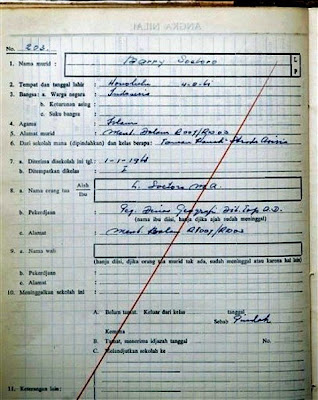 ANGKA NILAI
No. 203.
1. Nama murid : Barry Soetoro L P
2. Tempat dan tanggal lahir : Honolulu 4-8-61
3. Bangsa : a. Warga negara : Indonesia
b. Keturunan asing :
c. Suku bangsa :
4. Agama : Islam
5. Alamat murid : Ment. Dalam R007/R003
6. Dari sekolah mana (dipindahkan) dan kelas berapa : Taman Kanak2 Strada Asisia
7. a. Diterima disekolah ini tgl. : 1-1-1968
b. Ditempatkan dikelas : I
8. a. Nama orang tua Ajah Ibu : L. Soetoro M.A.
b. Pekerdjaan : Peg. Dinas Geografi Dit. Top. A.D.
(nama ibu diisi, hanja djika ajah sudah meninggal)
c. Alamat : Ment. Dalam R007/R003
9. a. Nama wali :
(hanja diisi, djika orang tua murid tak ada, sudah meninggal atau karena hal lain
b. Pekerdjaan :
c. Alamat :
10. Meninggalkan sekolah ini :
A. Belum tamat. Keluar dari kelas tanggal
Sebab Pindah
Kemana
B. Tamat, menerima idjazah tanggal No.
C. Melandjutkan sekolah ke
11. Keterangan lain :